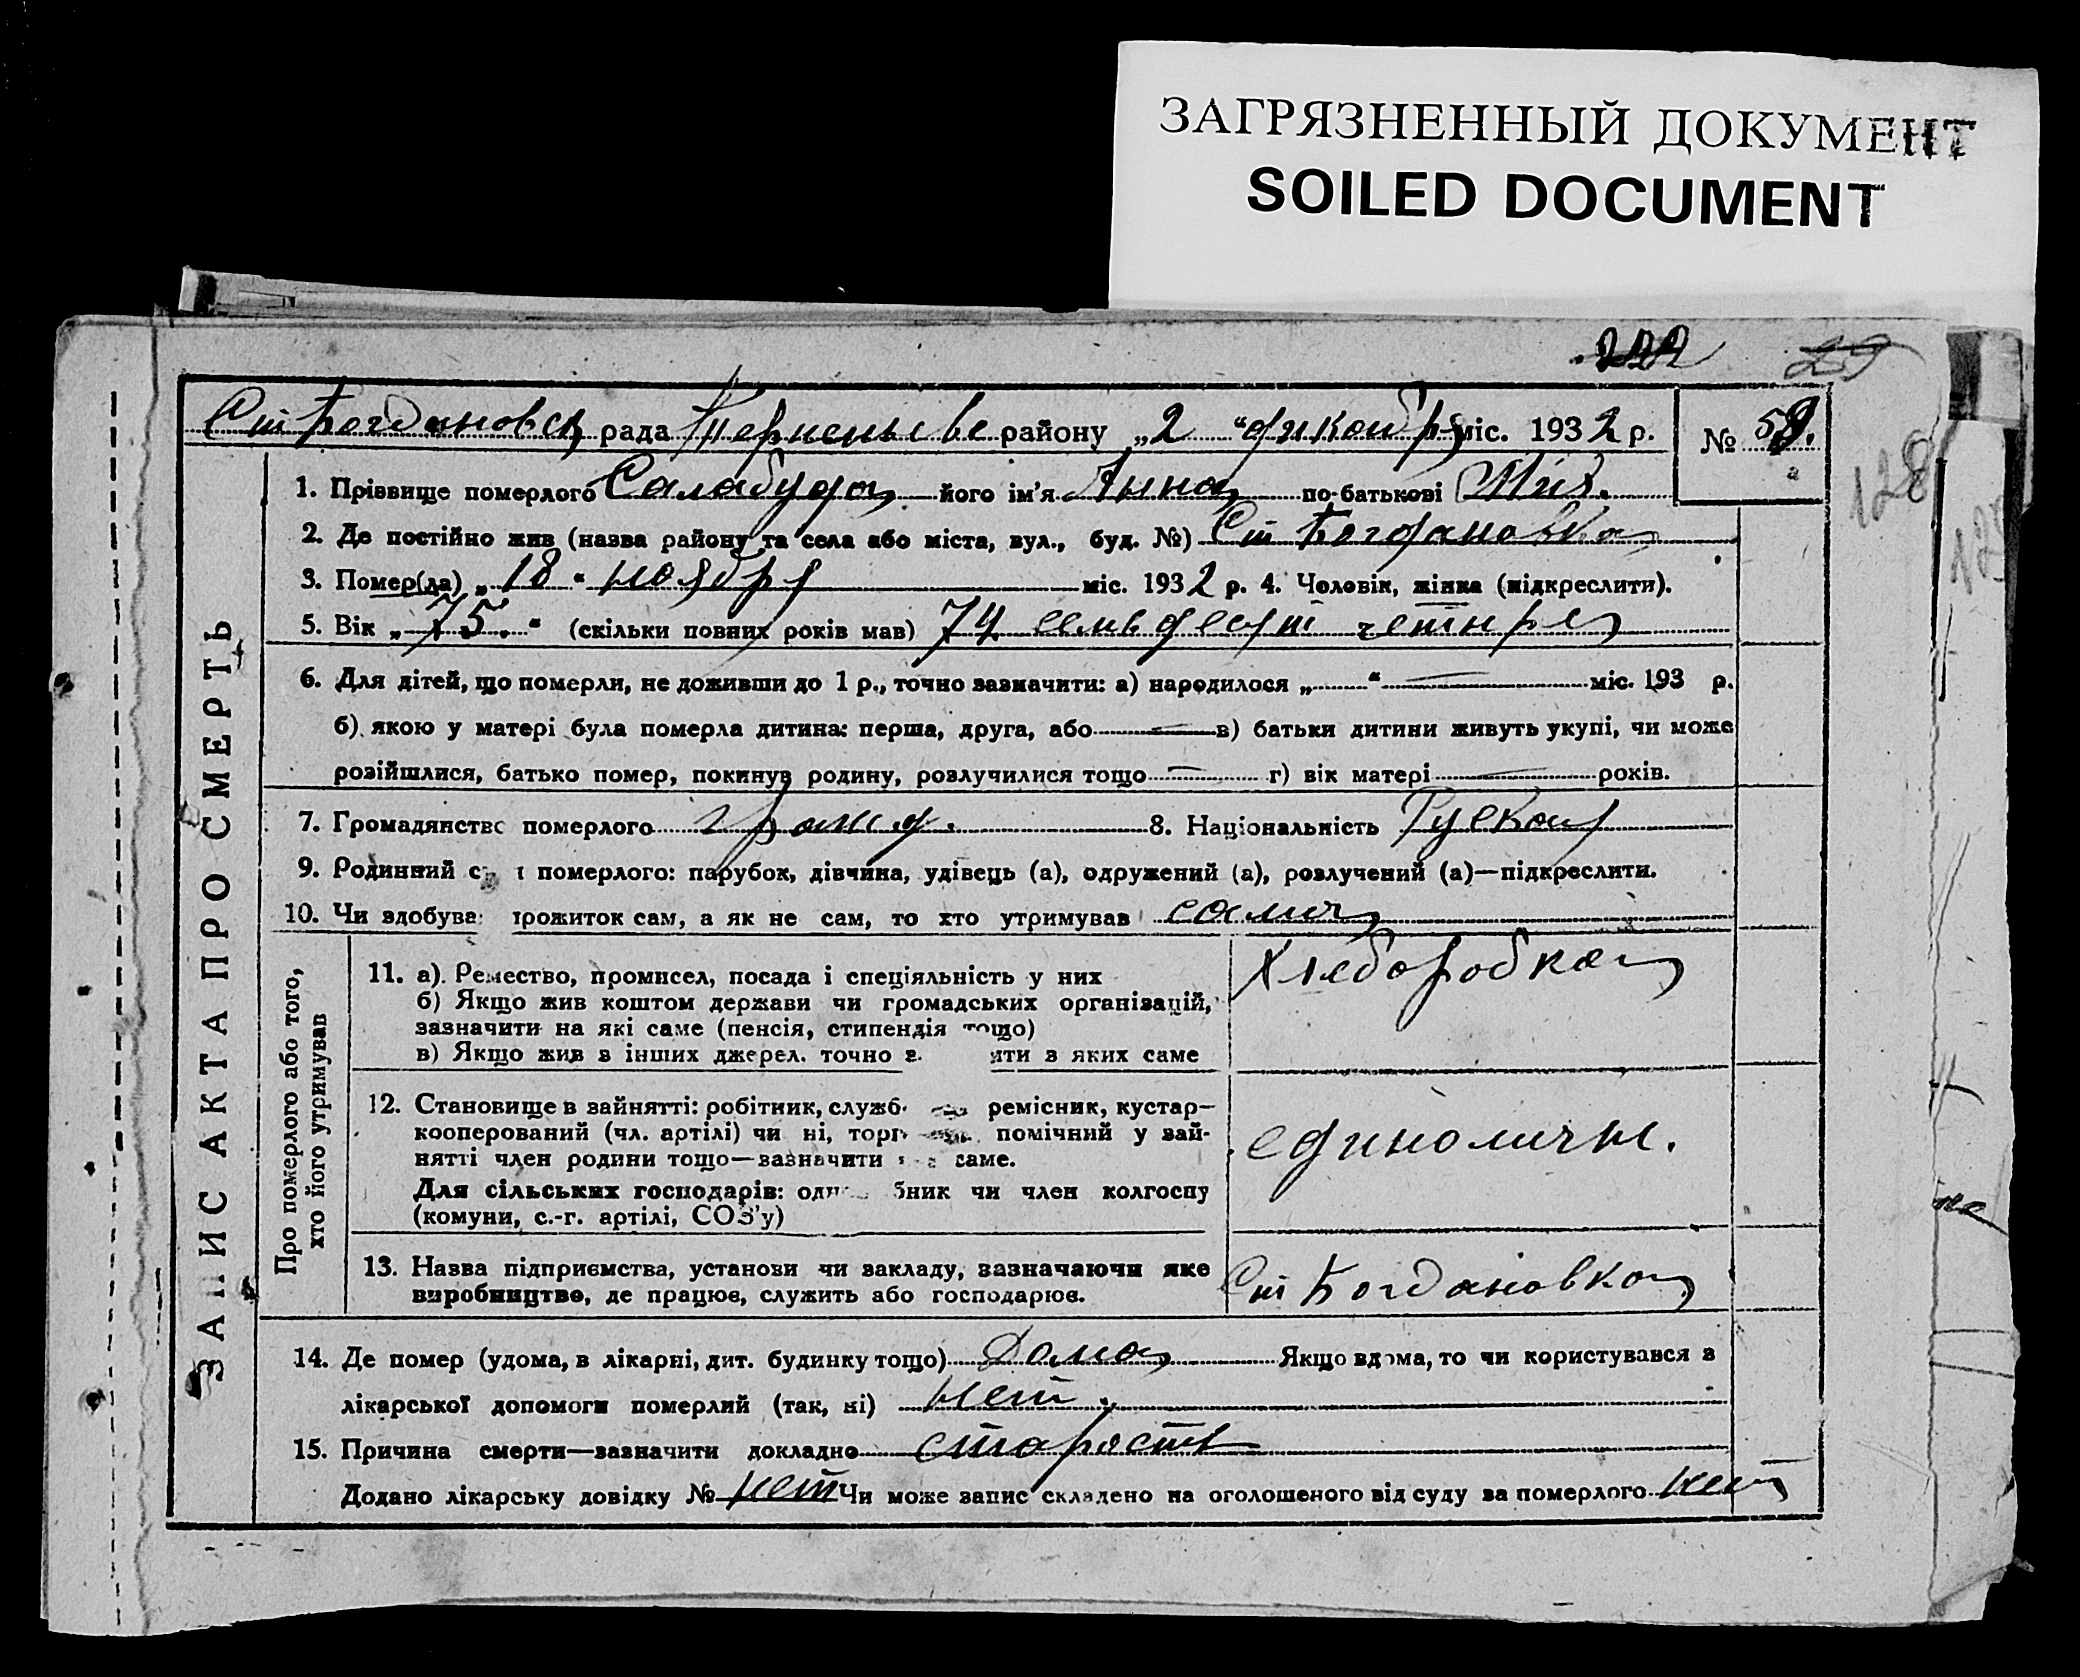 ЗАГРЯЗНЕННЫЙ ДОКУМЕНТ
SOILED DOCUMENT
222 29
Ст Богдановск рада районну „2“ декабря міс. 1932 р. № 59.
1. Прізвище померлого Салабуда його ім'я Анна по-батькові Мих.
128
2. Де постійно жив (назва району та села або міста, вул., буд. №) Ст Богдановка
3. Помер(ла) „18“ ноября міс. 1932 р. 4. Чоловік, жінка (підкреслити).
5. Вік „75.“ (скільки повних років мав) 74 семьдесят четыре
6. Для дітей, що померли, не доживши до 1 р., точно зазначити: а) народилося „ “ міс. 193 р.
б) якою у матері була померла дитина: перша, друга, або в) батьки дитини живуть укупі, чи може
розійшлися, батько помер, покинув родину, розлучилися тощо г) вік матері років.
7. Громадянство померлого гражд. 8. Національність Руская
9. Родинний с т померлого: парубок, дівчина, удівець (а), одружений (а), розлучений (а)—підкреслити.
10. Чи здобува прожиток сам, а як не сам, то хто утримував сама
ЗАПИС АКТА ПРО СМЕРТЬ
Про померлого або того,
хто його утримував
11. а). Ремество, промисел, посада і спеціяльність у них
б) Якщо жив коштом держави чи громадських організацій,
зазначити на які саме (пенсія, стипендія тощо)
в) Якщо жив з інших джерел. точно з яти з яких саме
Хлеборобка
12. Становище в зайнятті: робітник, служб ремісник, кустар—
кооперований (чл. артілі) чи ні, торг помічний у зай-
нятті член родини тощо—зазначити саме.
Для сільських господарів: одн бник чи член колгоспу
(комуни, с.-г. артілі, СОЗ'у)
единоличн.
13. Назва підприємства, установи чи закладу, зазначаючи яке
виробництво, де працює, служить або господарює.
Ст Богдановка
14. Де помер (удома, в лікарні, дит. будинку тощо) Дома Якщо вдома, то чи користувався з
лікарської допомоги померлий (так, ні) нет.
15. Причина смерти—зазначити докладно старость
Додано лікарську довідку № нет Чи може запис складено на оголошеного від суду за померлого нет